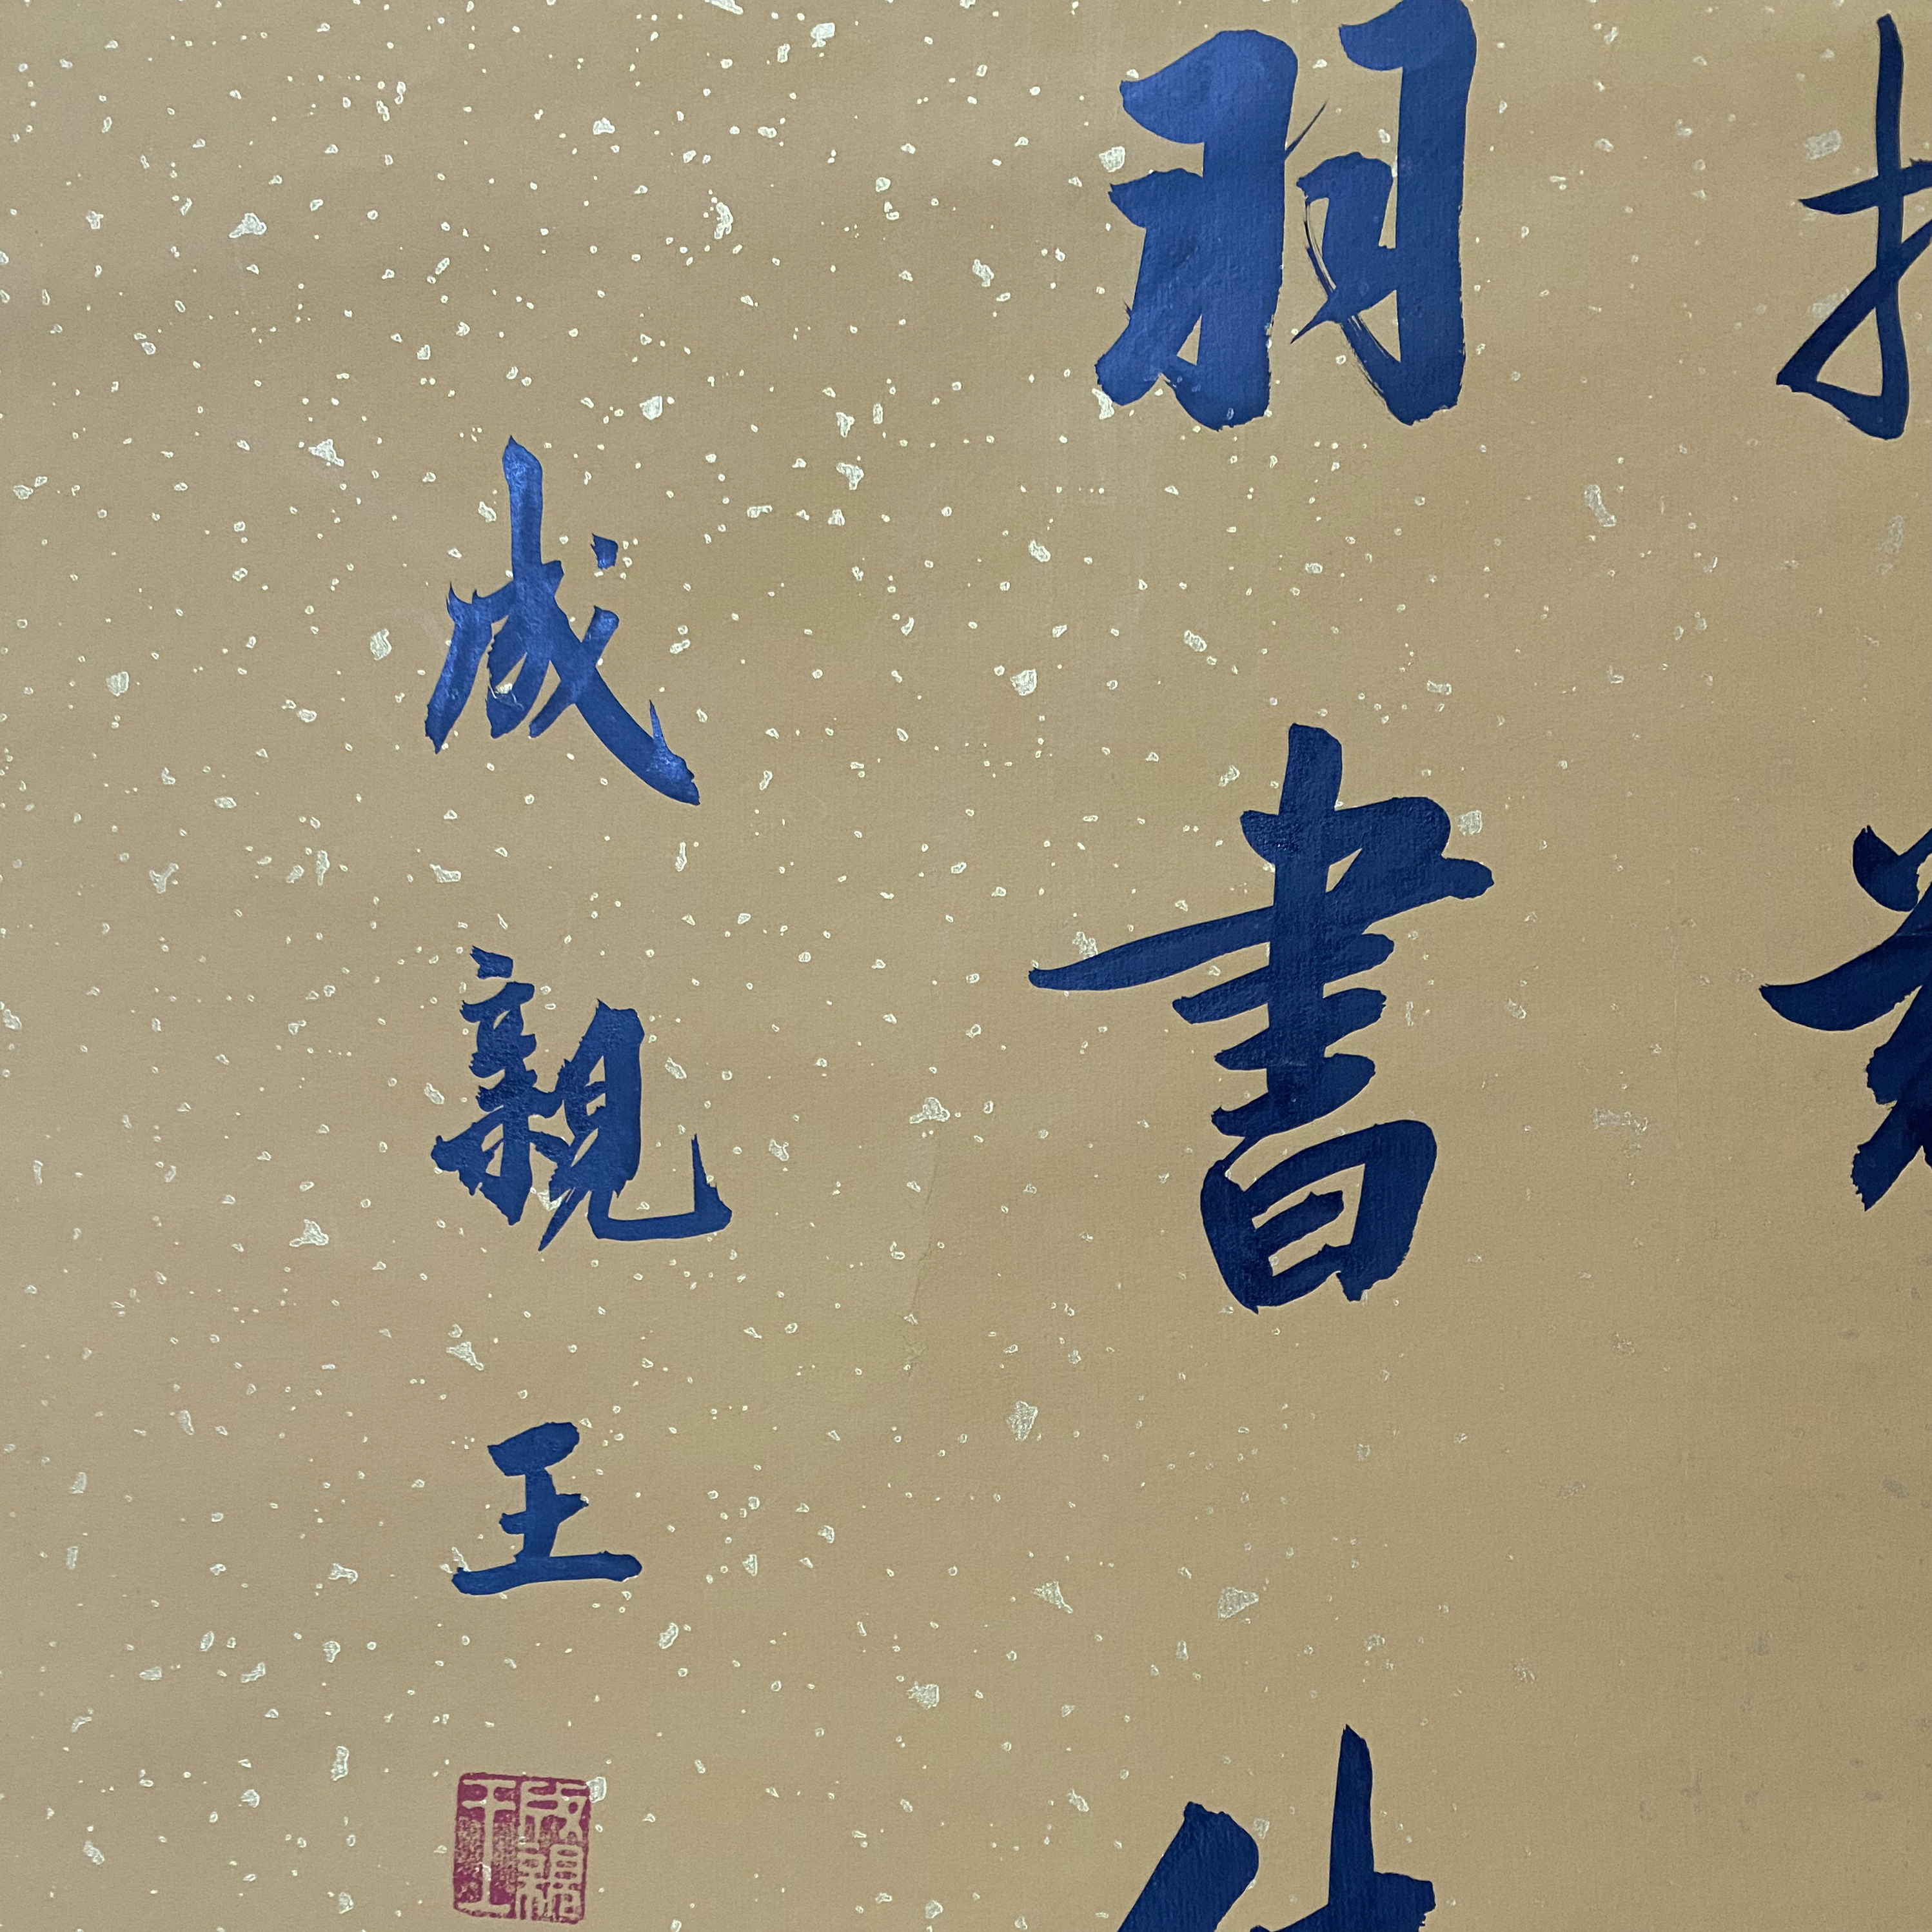 羽書
成親王
成親王